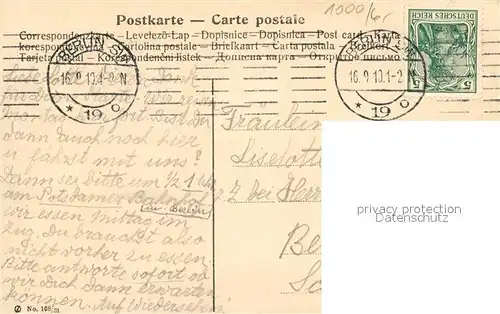 Postkarte — Carte postale
1000/6
Correspondenzkarte - Levelező-Lap - Dopisnice - Dopisnica - Post card - Karta
korespondencyjna - Cartolina postale - Briefkaart - Carta postala - Brefkort
Tarjeta postal - Korespondenční lístek - Дописна карта - Открытое письмо
BERLIN S.W.
16.9.10.1-2N
* 19 o
BERLIN S.W.
16.9.10.1-2
* 19 o
DEUTSCHES REICH
5 5
dann auch noch hier
u fährst mit uns?
Dann sei bitte um 1/2 1 Uhr
am Potsdamer Bahnhof
(in Berlin)
wir essen Mittag im
Zug. Du brauchst also
nicht vorher zu essen.
Bitte antworte sofort ob
wir Dich dann erwarten
können. Auf Wiedersehen
Fräulein
Liselotte
z Z bei Herr
Be
privacy protection
Datenschutz
No. 108/21